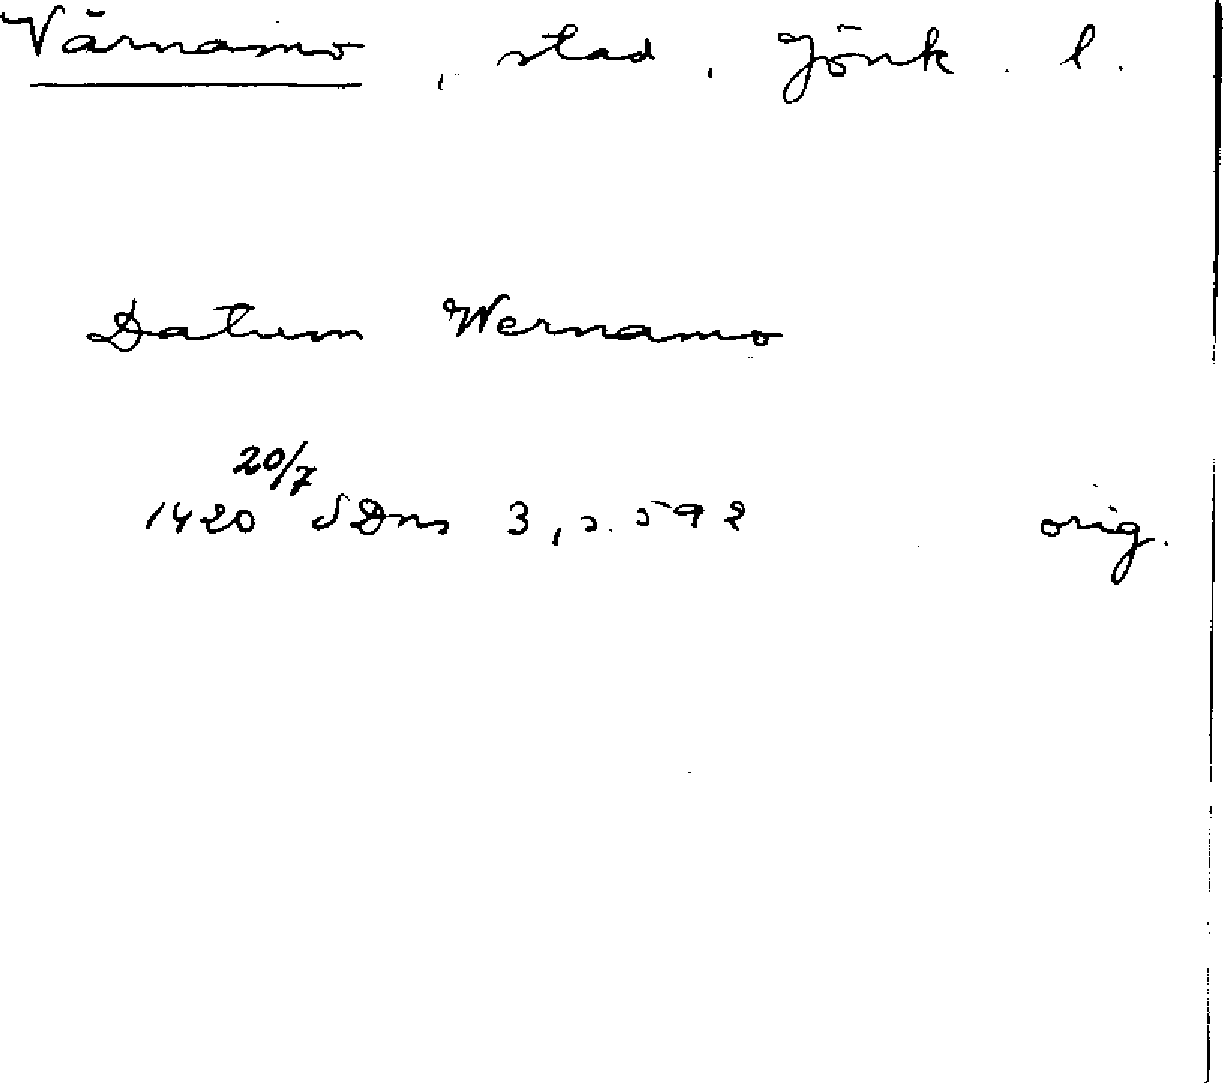 Värnamo, stad. Jönk. l.
Datum Wernamo
20/7
1420 SDns 3, s. 592 orig.